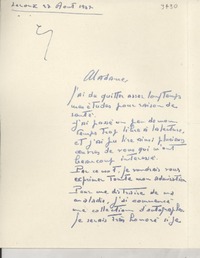 27 Août 1947
Madame
j'ai dû quitter assez longtemps
mes études pour raison de
santé.
j'ai passé un peu de mon
temps trop libre à la lecture
et j'ai pu lire ainsi plusieurs
œuvres de vous qui m'ont
beaucoup intéressé.
Par ce mot, je voudrais vous
exprimer toute mon admiration
Pour me distraire de ma
maladie, j'ai commencé
une collection d'autographes
je serais très honoré si je